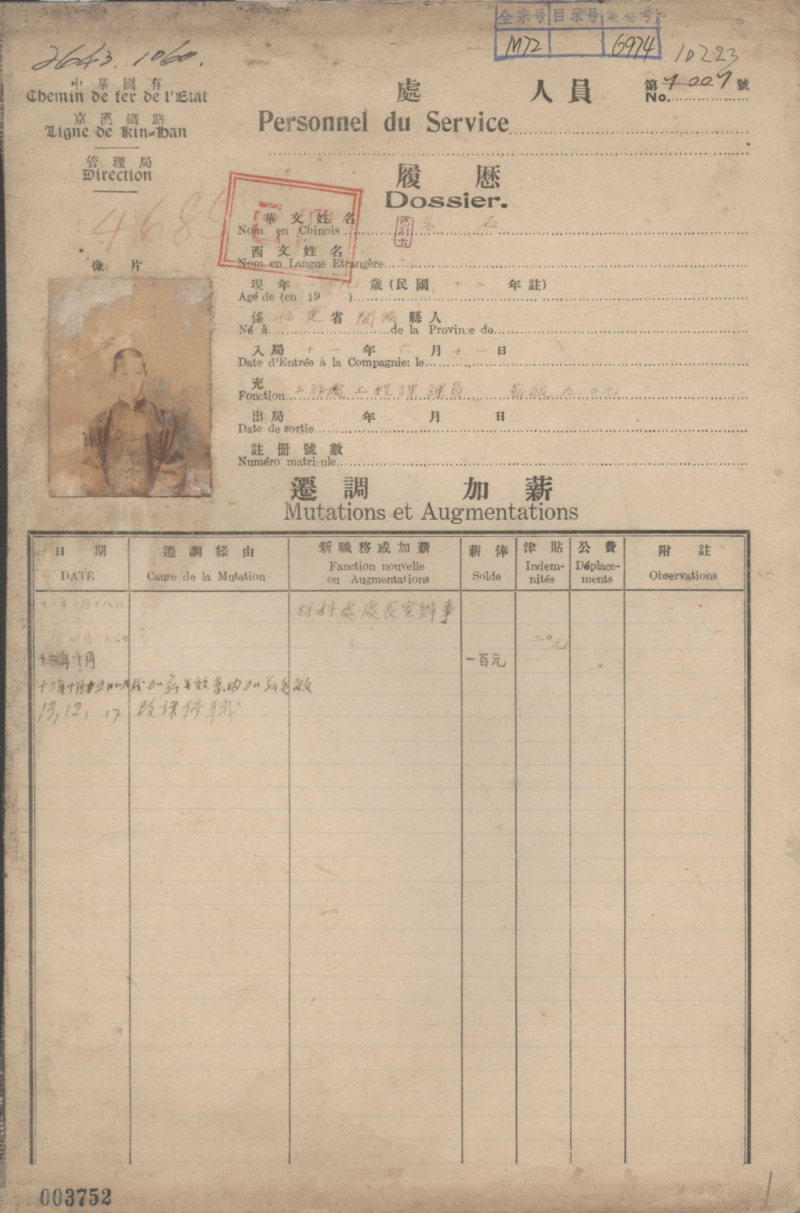 全宗号 目录号 案卷号
M72 6974
2643. 1060.
10223
中華國有
Chemin de fer de l'Etat
京漢鐵路
Ligne de Kin-Han
管理局
Direction
處 人員
Personnel du Service
第 號
No.
履歷
Dossier.
4685
華文姓名
Nom en Chinois
石
西文姓名
Nom en Langue Etrangère
像片
現年 歲(民國 十二 年註)
Agé de (en 19 )
係 福建 省 閩侯 縣人
Né à de la Province de
入局 十一 年 六 月 十一 日
Date d'Entrée à la Compagnie: le
充 工務處工程課課員 薪額九〇元
Fonction
出局 年 月 日
Date de sortie
註冊號數
Numéro matricule
遷調 加薪
Mutations et Augmentations
日期 遷調緣由 新職務或加薪 薪俸 津貼 公費 附註
DATE Cause de la Mutation Fanction nouvelle ou Augmentations Solde Indem-nités Déplace-ments Observations
材料處處長室辦事
二〇元
十三年十月 一百元
13, 12, 17 改課停職
003752
1